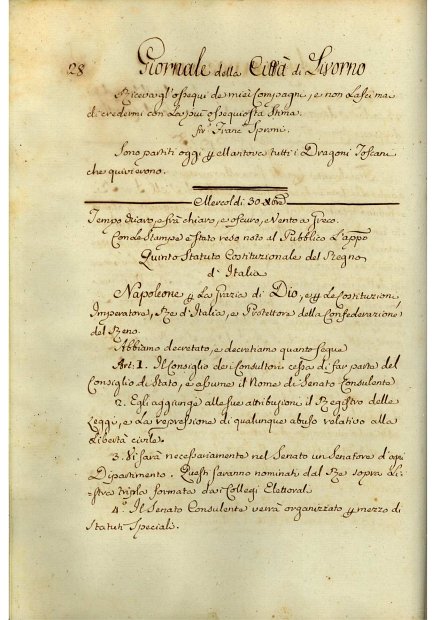 28 Giornale della Città di Livorno
Riceva gl'ossequi de miei Compagni, e non lasci mai
di credermi con la più ossequiosa stima
Franc.
Sono partiti oggi p Mantova tutti i Dragoni Toscani
che quivi erono.
Mercoldì 30 Nov.re
Tempo chiaro, e frà chiaro, e oscuro, e Vento a Greco.
Con le Stampe è stato reso noto al Pubblico l'app.o
Quinto Statuto Costituzionale del Regno
d'Italia
Napoleone p la Grazia di Dio, e p le Costituzioni
Imperatore, Rè d'Italia, e Protettore della Confederazione
del Reno.
Abbiamo decretato, e decretiamo quanto segue
Art: 1. Il Consiglio dei Consultori cessa di far parte del
Consiglio di Stato, e assume il Nome di Senato Consulente
2. Egli aggiunge alle sue attribuzioni il Registro delle
Leggi, e la repressione di qualunque abuso relativo alla
Libertà civile.
3. Vi sarà necessariamente nel Senato un Senatore d'ogni
Dipartimento. Questi saranno nominati dal Rè sopra Li-
stra tripla formata dai Collegi Elettorali.
4.° Il Senato Consulente verrà organizzato p mezzo di
Statuti Speciali.